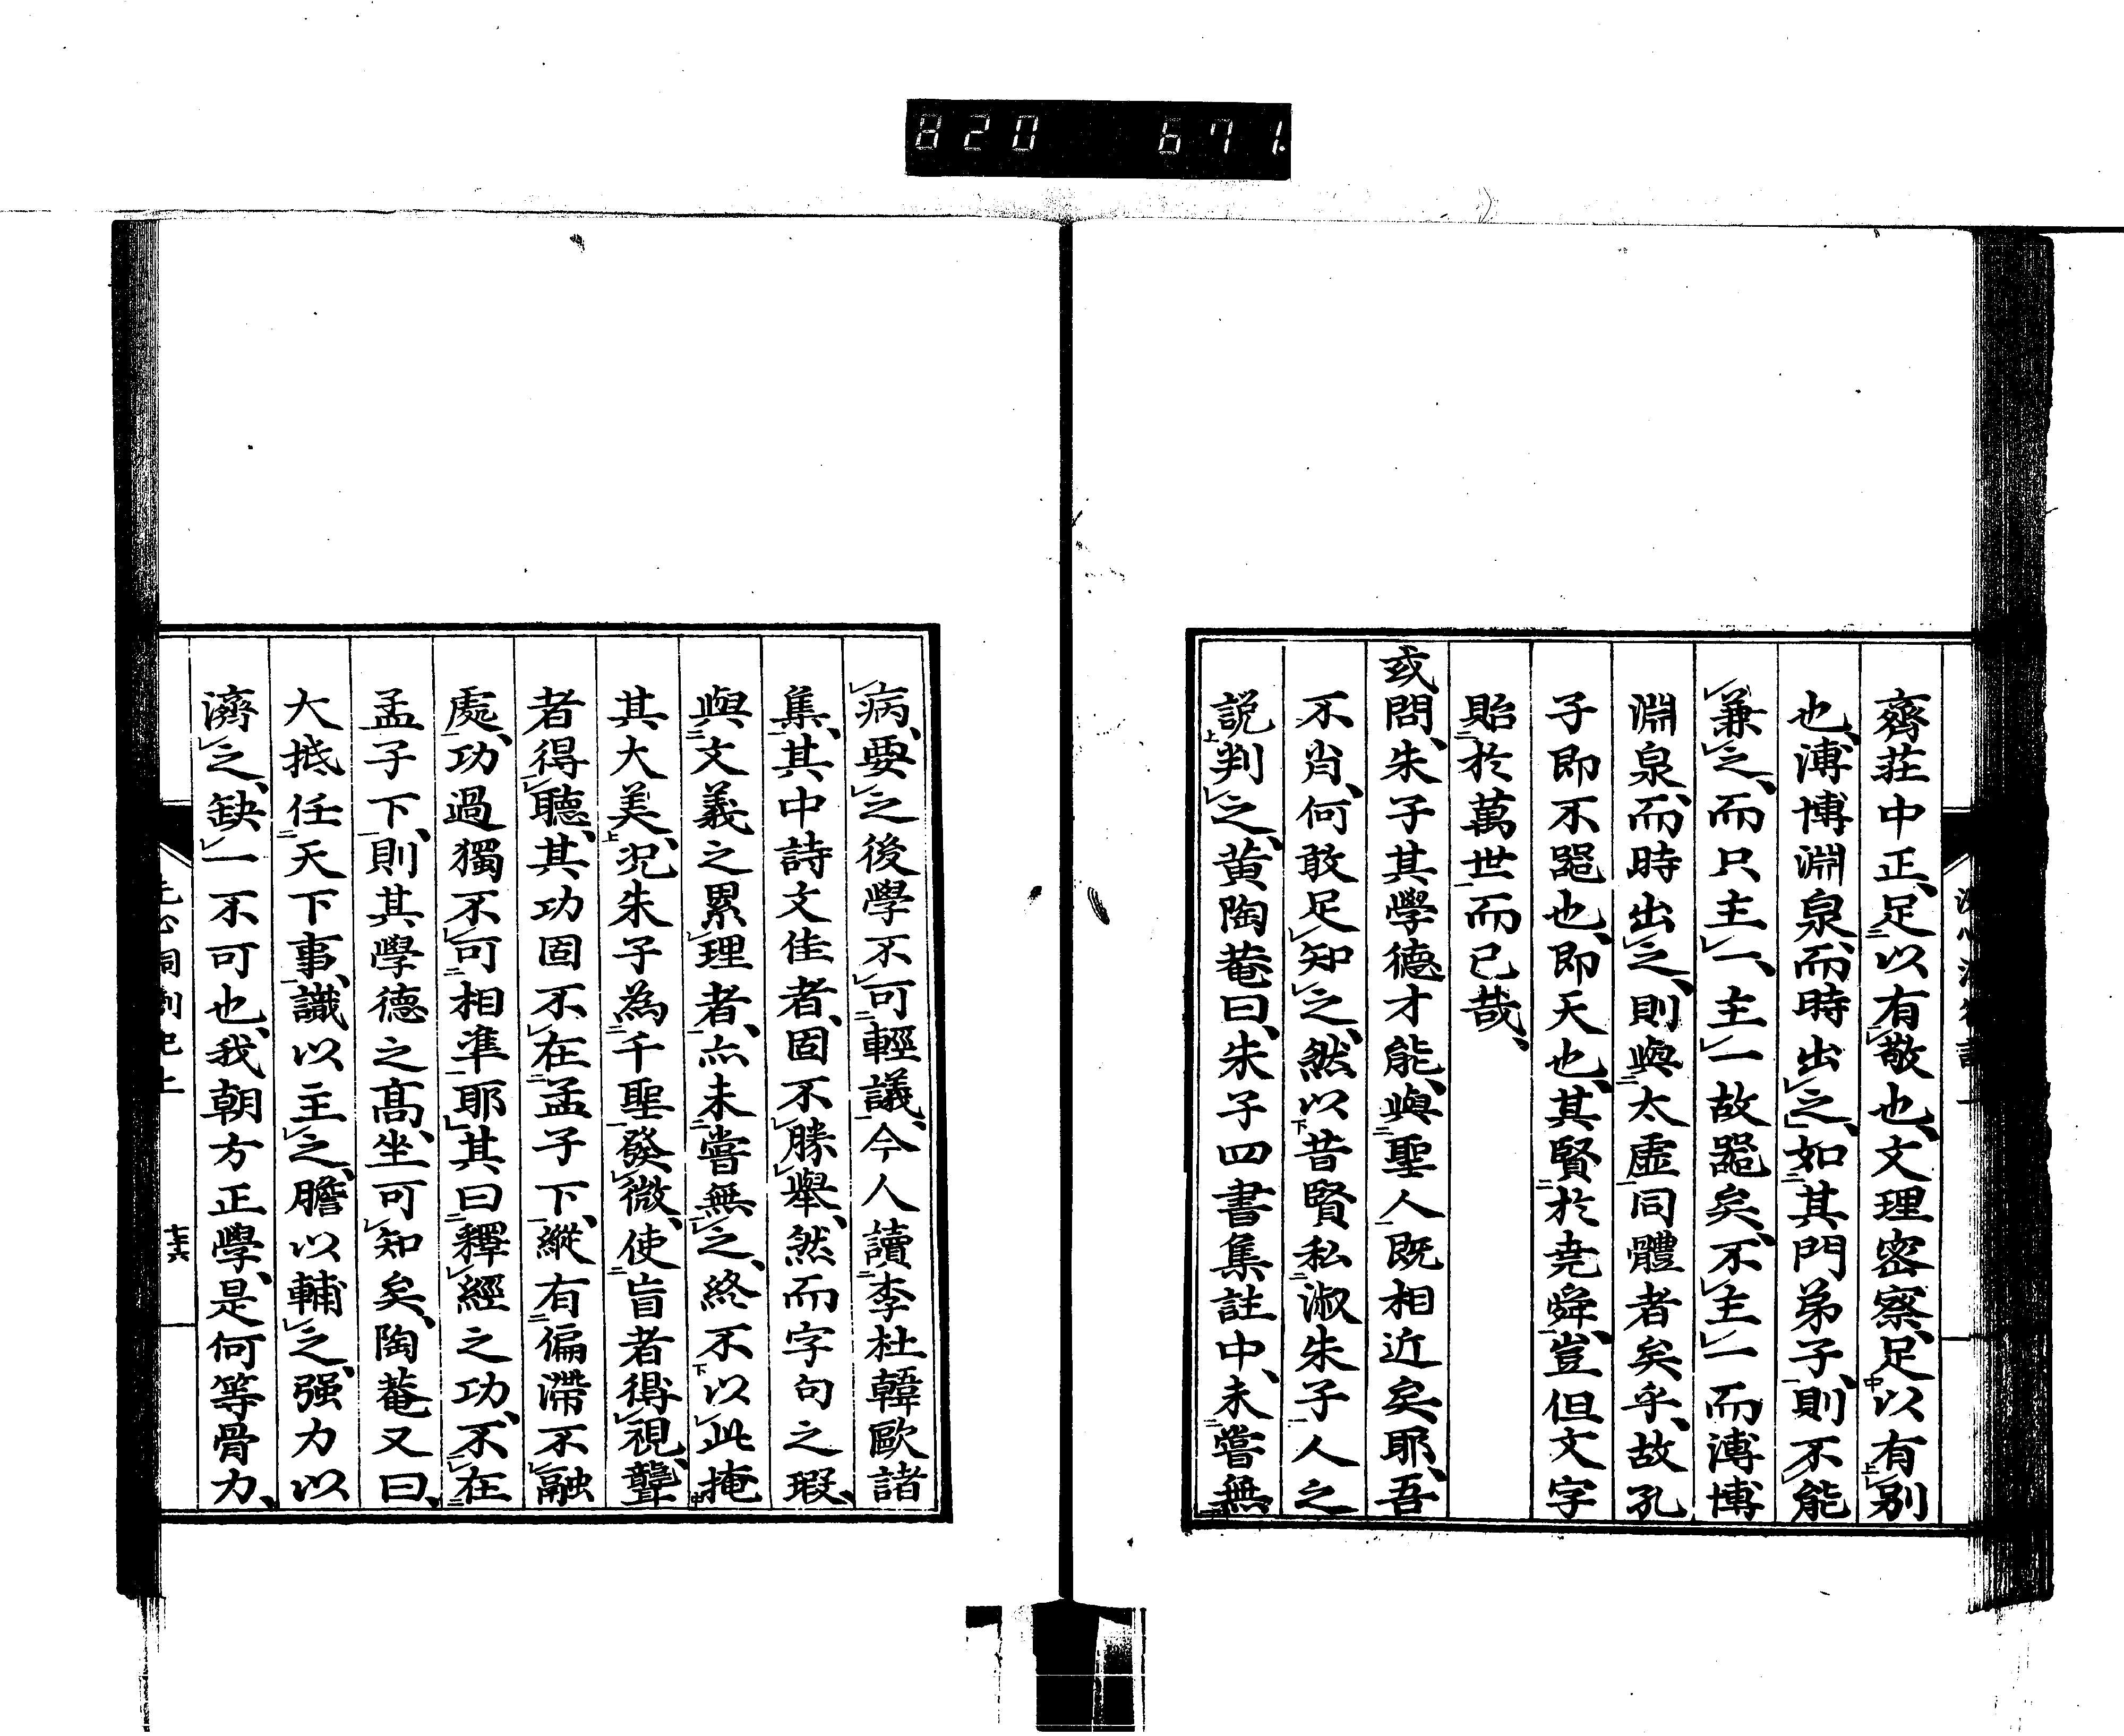 820 671
齋莊中正、足以有敬也、文理密察、足以有別
也、溥博淵泉、而時出之、如其門弟子、則不能
兼之、而只主一、主一故器矣、不主一而溥博
淵泉、而時出之、則與太虛同體者矣乎、故孔
子即不器也、即天也、其賢於堯舜、豈但文字
貽於萬世而已哉、
或問、朱子其學德才能、與聖人既相近矣耶、吾
不肖、何敢足知之、然以昔賢私淑朱子人之
説判之、黄陶菴曰、朱子四書集註中、未嘗無
病、要之後學不可輕議、今人讀李杜韓歐諸
集、其中詩文佳者、固不勝舉、然而字句之瑕、
與文義之累理者、亦未嘗無之、終不以此掩
其大美、況朱子為千聖發微、使盲者得視、聾
者得聽、其功固不在孟子下、縱有偏滯不融
處、功過獨不可相準耶、其曰釋經之功、不在
孟子下、則其學德之高、坐可知矣、陶菴又曰、
大抵任天下事、識以主之、膽以輔之、强力以
濟之、缺一不可也、我朝方正學、是何等骨力、
洞劄記上
七十六